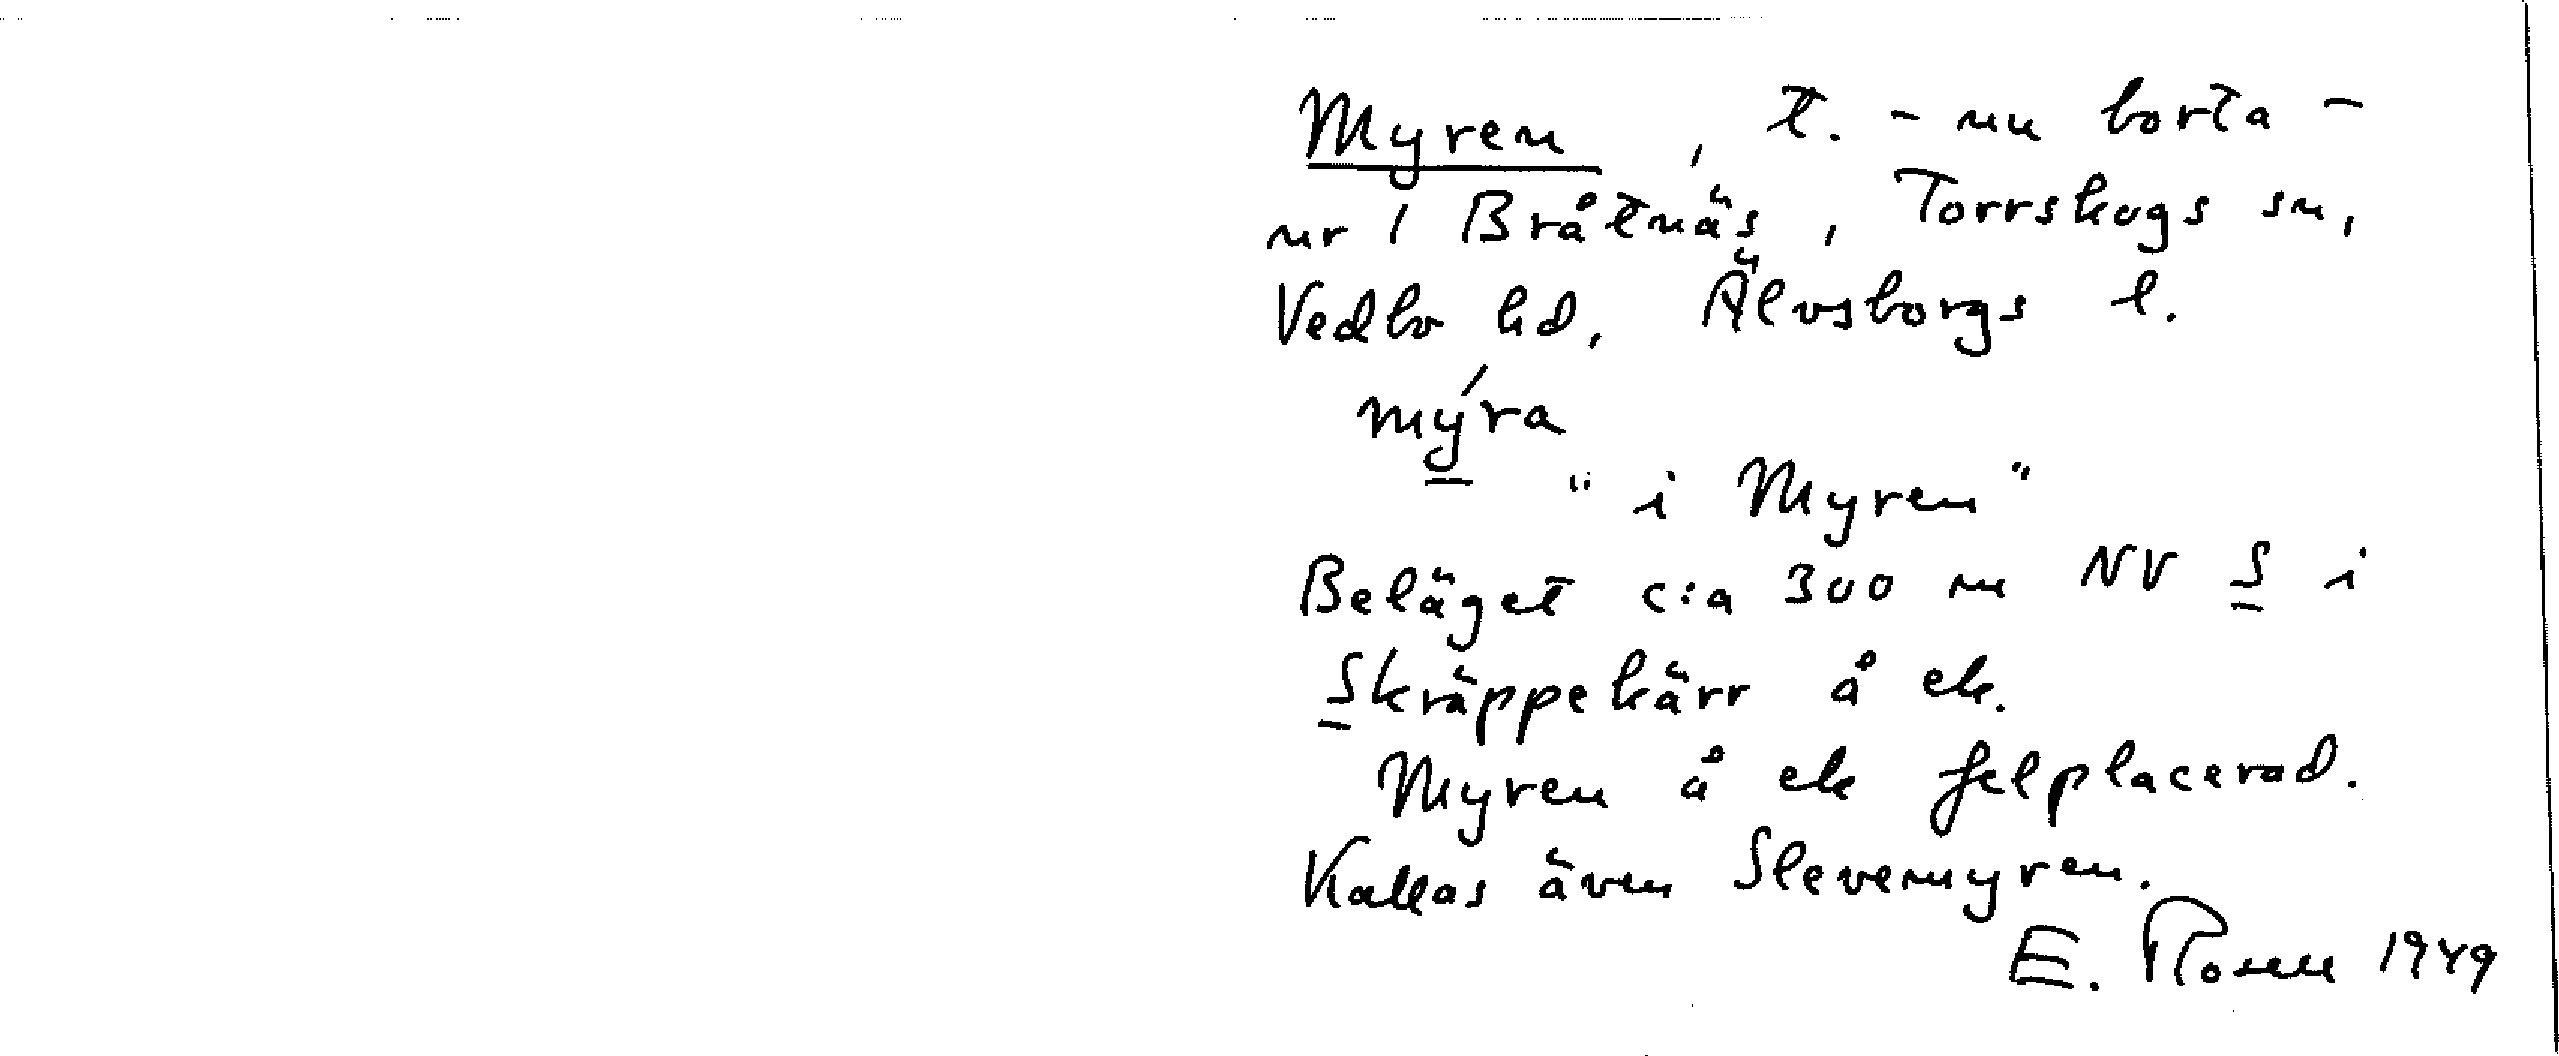 Myren, t. - nu borta -
ur 1 Bråtnäs, Torrskogs sn,
Vedbo hd, Älvsborgs l.
mýra
"i Myren"
Beläget c:a 300 m NV S i
Skräppekärr å ek.
Myren å ek felplacerad.
Kallas även Slevemyren.
E. Rosell 1949